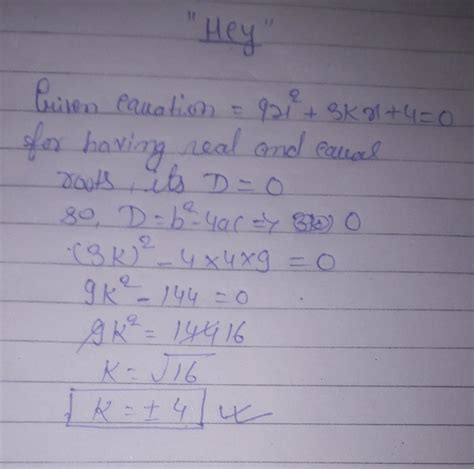 "Hey"
Given equation = 9x² + 3Kx + 4 = 0
for having real and equal
roots, its D = 0
so, D = b² - 4ac => 0
(3K)² - 4×4×9 = 0
9K² - 144 = 0
9K² = 144 16
K = √16
K = ± 4